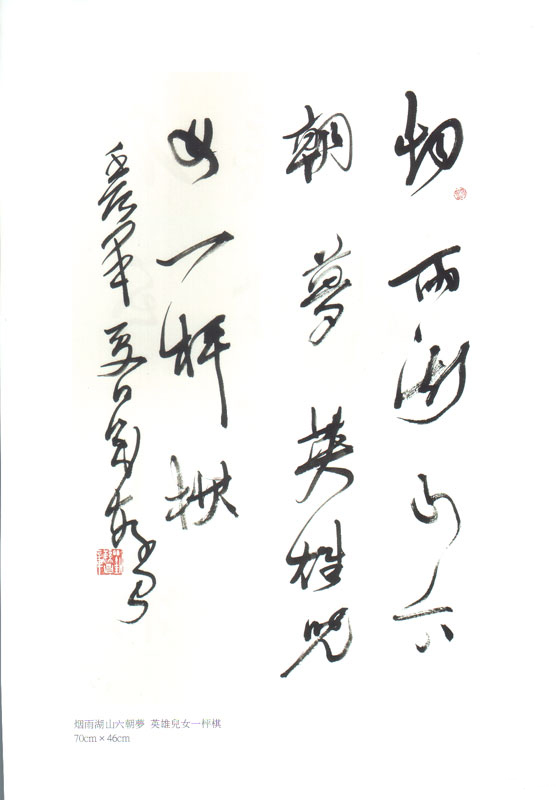 烟雨湖山六
朝夢英雄兒
女一枰棋
夏日
烟雨湖山六朝夢 英雄兒女一枰棋
70cm×46cm